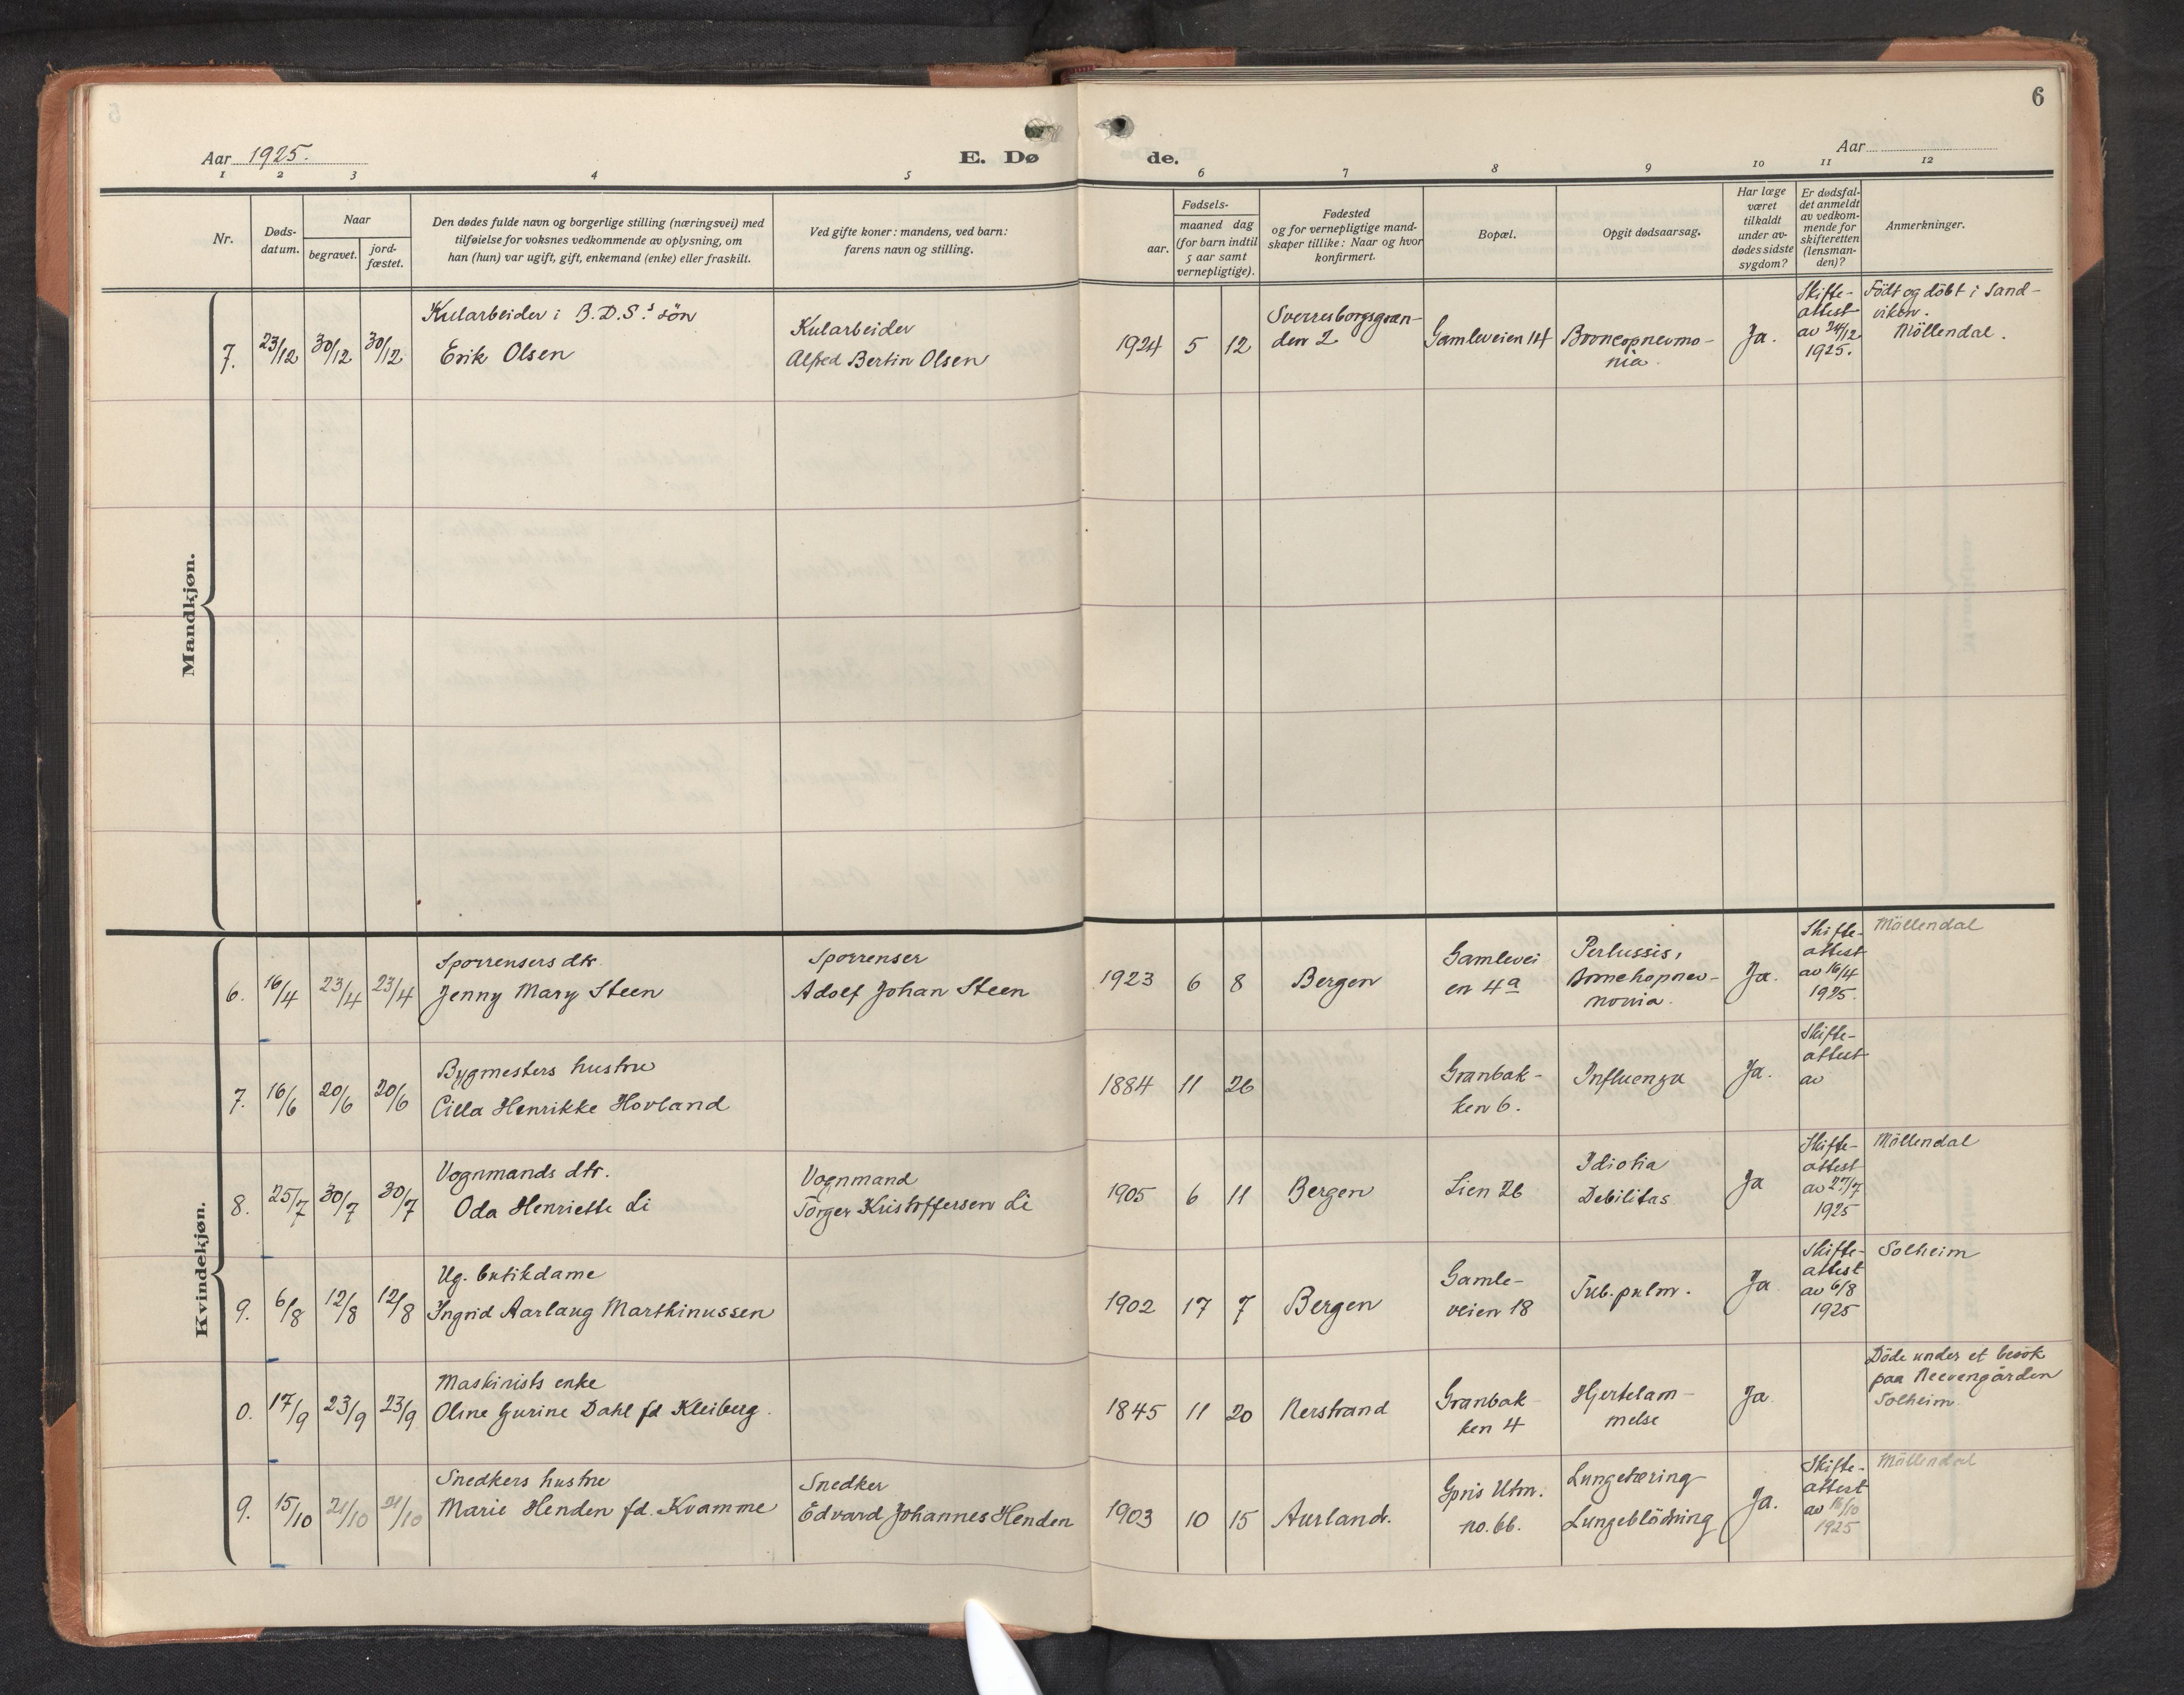 6
Aar 1925.
E. Dø
de.
Aar
1 2 3 4 5 6 7 8 9 10 11 12
Nr.
Døds-
datum.
Naar
begravet.
jord-
fæstet.
Den dødes fulde navn og borgerlige stilling (næringsvei) med
tilføielse for voksnes vedkommende av oplysning, om
han (hun) var ugift, gift, enkemand (enke) eller fraskilt.
Ved gifte koner: mandens, ved barn:
farens navn og stilling.
Fødsels-
aar.
maaned dag
(for barn indtil
5 aar samt
vernepligtige).
Fødested
og for vernepligtige mand-
skaper tillike: Naar og hvor
konfirmert.
Bopæl.
Opgit dødsaarsag.
Har læge
været
tilkaldt
under av-
dødes sidste
sygdom?
Er dødsfal-
det anmeldt
av vedkom-
mende for
skifteretten
(lensman-
den)?
Anmerkninger.
Mandkjøn.
7.
23/12
30/12
30/12
Kularbeider i B.D.S.s sön
Erik Olsen
Kularbeider
Alfred Bertin Olsen
1924
5
12
Sverresborgsgræn-
den 2
Gamleveien 14
Broncopnevmo-
nia.
Ja.
Skifte-
attest
av 24/12
1925.
Födt og döbt i Sand-
viken.
Möllendal.
Kvindekjøn.
6.
16/4
23/4
23/4
Sporrensers dtr.
Jenny Mary Steen
Sporrenser
Adolf Johan Steen
1923
6
8
Bergen
Gamlevei
en 4a
Pertussis,
novia.
Ja.
Skifte-
attest
av 16/4
1925.
Möllendal
7.
16/6
20/6
20/6
Bygmesters hustru
Cilla Henrikke Hovland
1884
11
26
Granbak-
ken 6.
Influenza
Ja.
Skifte-
attest
av
8.
25/7
30/7
30/7
Vognmands dtr.
Oda Henriette Li
Vognmand
Torger Kristoffersen Li
1905
6
11
Bergen
Lien 26
Idiotia
Debilitas
Ja
Skifte-
attest
av 27/7
1925
Möllendal
9.
6/8
12/8
12/8
Ug. butikdame
Ingrid Aarlaug Marthinussen
1902
17
7
Bergen
Gamle-
veien 18
Tub. pulm.
Ja.
Skifte-
attest
av 6/8
1925
Solheim
0.
17/9
23/9
23/9
Maskinists enke
Oline Gurine Dahl fd Kleiberg.
1845
11
20
Nerstrand
Granbak
ken 4
Hjertelam-
melse
Ja.
Döde under et besök
paa Neevengården
Solheim.
9.
15/10
21/10
21/10
Snedkers hustru
Marie Henden fd. Kvamme
Snedker
Edvard Johannes Henden
1903
10
15
Aurland.
Utm.
no. 6b.
Lungetæring
Lungeblödning
Ja.
Skifte-
attest
av 16/10
1925
Möllendal